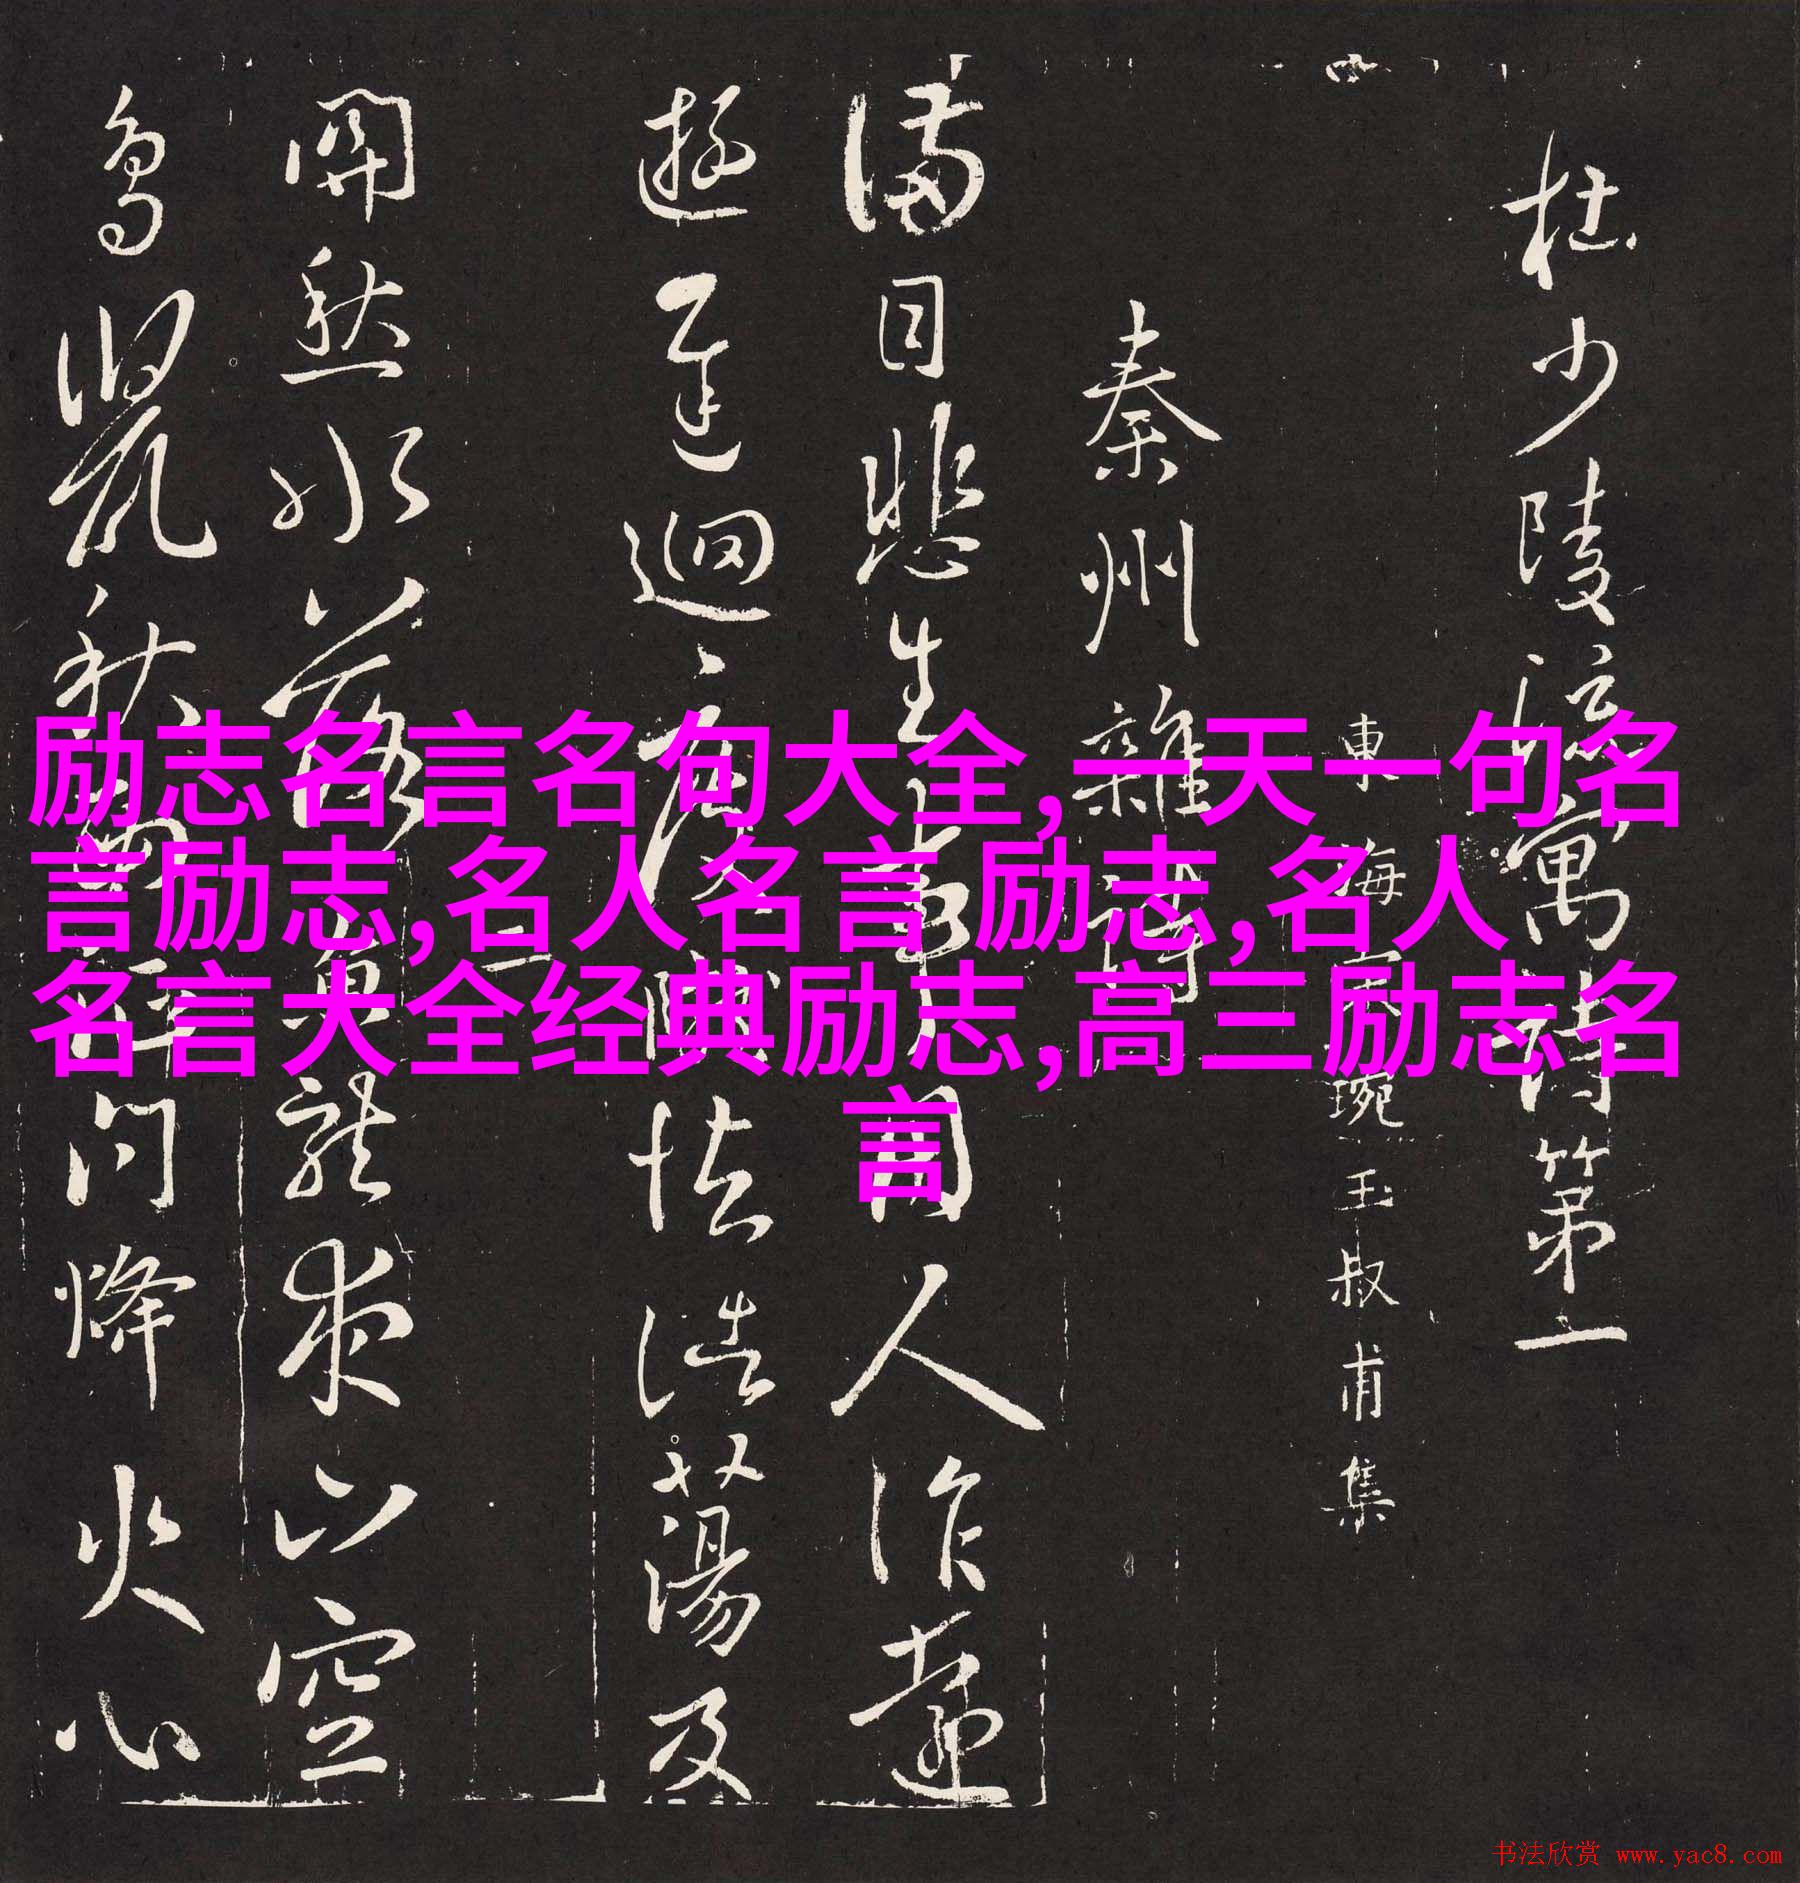 杜少陵流寓詩第一
東海宋琬玉叔甫集
秦州雜詩
滿目悲生事因人作遠
遊遲迴度隴怯浩蕩及
關愁水落魚龍夜山空
鳥鼠秋西征問烽火心
励志名言名句大全,一天一句名
言励志,名人名言 励志,名人
名言大全经典励志,高三励志名
言
书法欣赏 www.yac8.com